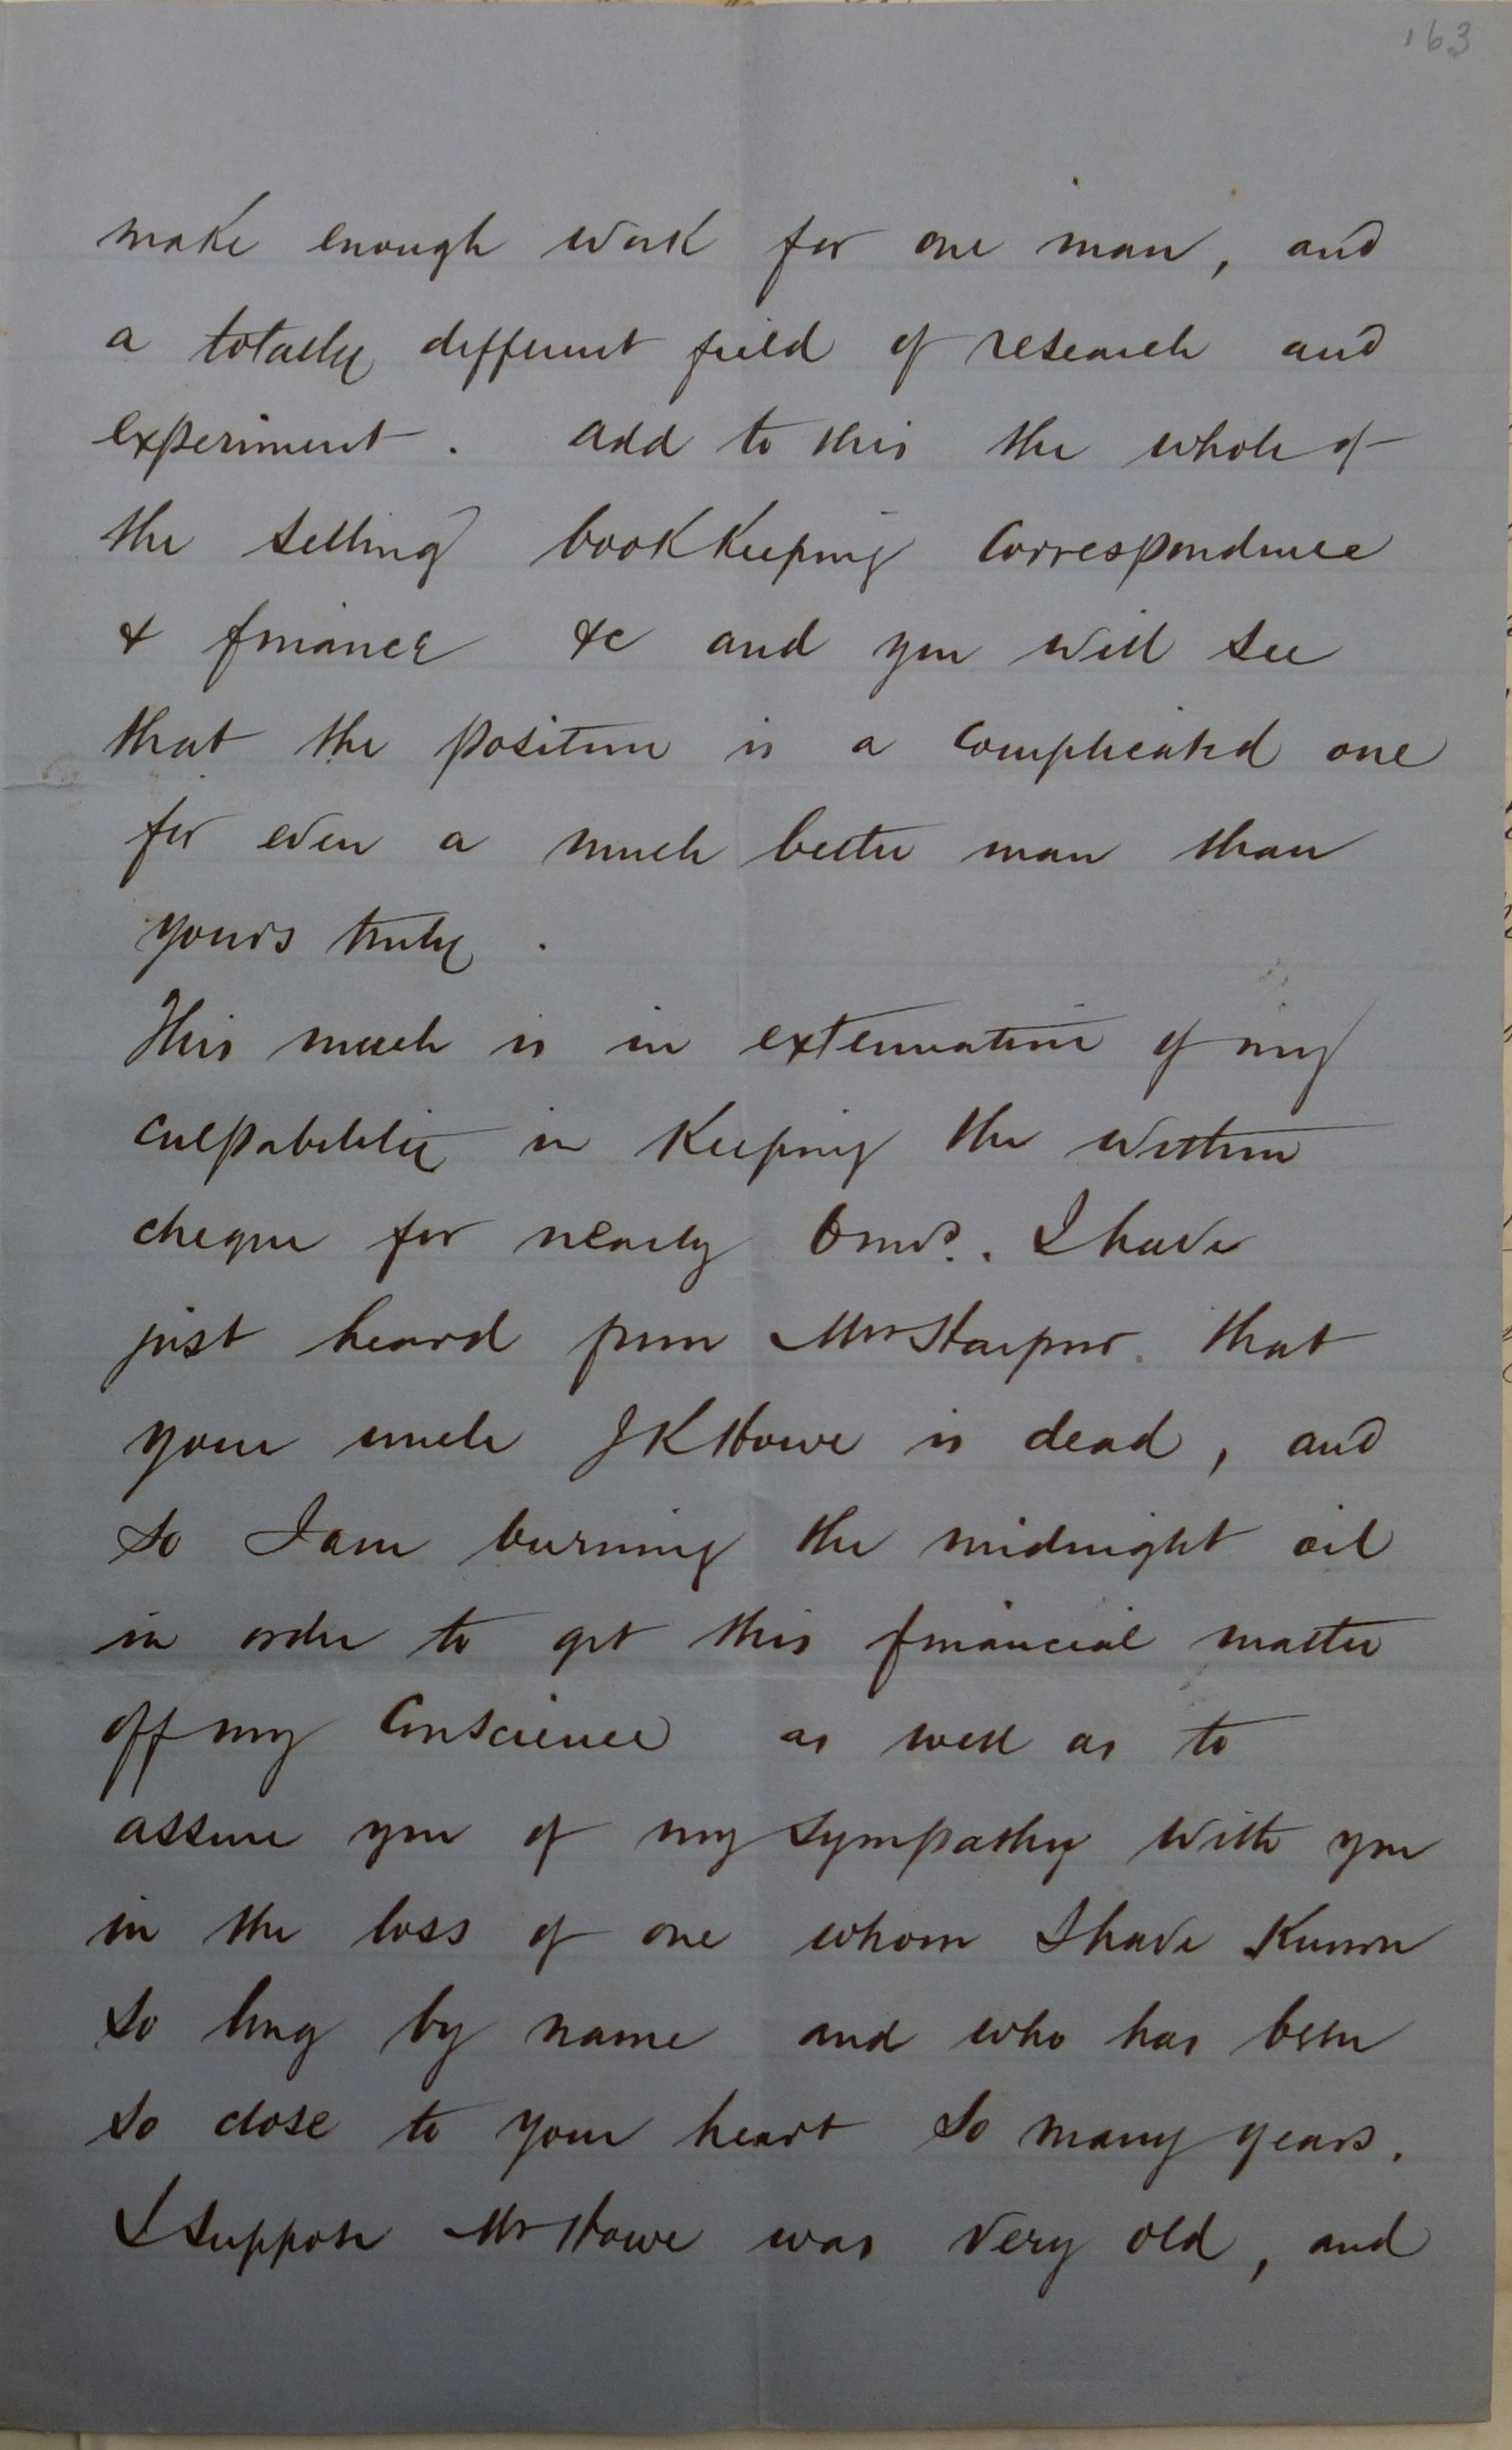 163
make enough work for one man, and
a totally different field of research and
experiment. add to this the whole of
the selling bookkeeping correspondence
& finance &c and you will see
that the position is a complicated one
for even a much better man than
yours truly.
This much is in extenuation of my
culpability in keeping the within
cheque for nearly 6 mos. I have
just heard from Mr that
your uncle J K Howe is dead, and
so I am burning the midnight oil
in order to get this financial matter
off my conscience as well as to
assure you of my sympathy with you
in the loss of one whom I have known
so long by name and who has been
so close to your heart so many years.
I suppose Mr Howe was very old, and